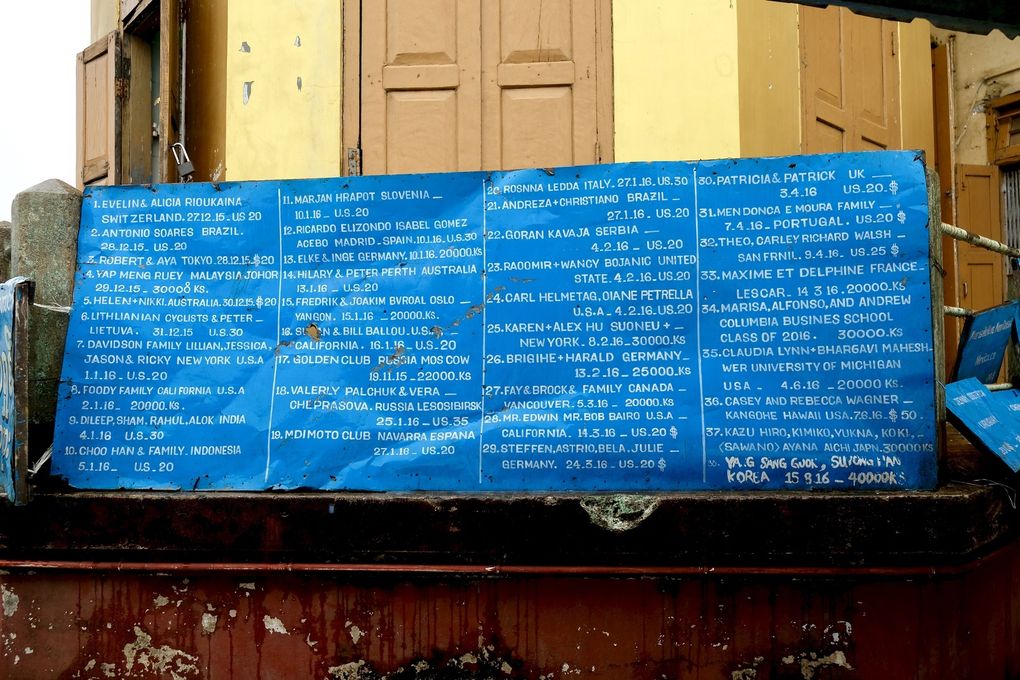 1. EVELIN & ALICIA RIOUKAINA
SWITZERLAND. 27.12.15 - US 20
2. ANTONIO SOARES BRAZIL.
28.12.15 - US.20
3. ROBERT & AYA TOKYO. 28.12.15. $20
4. YAP MENG RUEY MALAYSIA JOHOR
29.12.15 - 30000 KS.
5. HELEN + NIKKI. AUSTRALIA. 30.12.15. $20
6. LITHLIANIAN CYCLISTS & PETER -
LIETUVA. 31.12.15 U.S.30
7. DAVIDSON FAMILY LILLIAN, JESSICA,
JASON & RICKY NEW YORK U.S.A
1.1.16 - US.20
8. FOODY FAMILY CALIFORNIA U.S.A
2.1.16 - 20000.KS
9. DILEEP, SHAM. RAHUL, ALOK INDIA
4.1.16 U.S.30
10. CHOO HAN & FAMILY. INDONESIA
5.1.16 - US.20
11. MARJAN HRAPOT SLOVENIA -
10.1.16 - U.S.20
12. RICARDO ELIZONDO ISABEL GOMEZ
ACEBO MADRID - SPAIN. 10.1.16. U.S.30
13. ELKE & INGE GERMANY. 10.1.16. 20000.KS
14. HILARY & PETER PERTH AUSTRALIA
13.1.16 - US.20
15. FREDRIK & JOAKIM BVROAL OSLO -
YANGON. 15.1.16 - 20000.KS.
16. SUSEN & BILL BALLOU. U.S.A -
CALIFORNIA. 16.1.16 - US.20
17. GOLDEN CLUB RUSSIA MOSCOW
19.11.15 - 22000.KS
18. VALERLY PALCHUK & VERA -
CHEPRASOVA. RUSSIA LESOSIBIRSK
25.1.16 - US.35
19. MDIMOTO CLUB NAVARRA ESPANA
27.1.16 - US.20
20. ROSNNA LEDDA ITALY. 27.1.16. US.30
21. ANDREZA + CHRISTIANO BRAZIL -
27.1.16 - US.20
22. GORAN KAVAJA SERBIA -
4.2.16 - US.20
23. RADOMIR + WANGY BOJANIC UNITED
STATE. 4.2.16 - US.20
24. CARL HELMETAG, DIANE PETRELLA
U.S.A - 4.2.16 - US.20
25. KAREN + ALEX HU SUONEU + -
NEW YORK. 8.2.16 - 30000.KS
26. BRIGIHE + HARALD GERMANY -
13.2.16 - 25000 KS
27. FAY & BROCK & FAMILY CANADA -
VANCOUVER. 5.3.16 - 20000.KS
28. MR. EDWIN MR. BOB BAIRO U.S.A -
CALIFORNIA. 14.3.16 - US.20 $
29. STEFFEN, ASTRIO, BELA. JULIE -
GERMANY. 24.3.16 - US.20 $
30. PATRICIA & PATRICK UK -
3.4.16 US.20.$
31. MENDONCA E MOURA FAMILY -
7.4.16 - PORTUGAL. US.20 $
32. THEO, CARLEY RICHARD WALSH -
SAN FRNIL. 9.4.16. US.25 $
33. MAXIME ET DELPHINE FRANCE -
LESCAR. 14 3 16. 20000.KS
34. MARISA, ALFONSO, AND ANDREW
COLUMBIA BUSINES SCHOOL
CLASS OF 2016. 30000.KS
35. CLAUDIA LYNN + BHARGAVI MAHESH-
WER UNIVERSITY OF MICHIGAN
USA - 4.6.16 - 20000 KS
36. CASEY AND REBECCA WAGNER -
KANGOHE HAWAII USA. 7.6.16. $ 50.
37. KAZU HIRO, KIMIKO, YUKNA, KOKI, -
(SAWANO) AYANA AICHI JAPN. 30000KS
38. YA.G SANG GUOK,
KOREA 15 8.16 - 40000KS